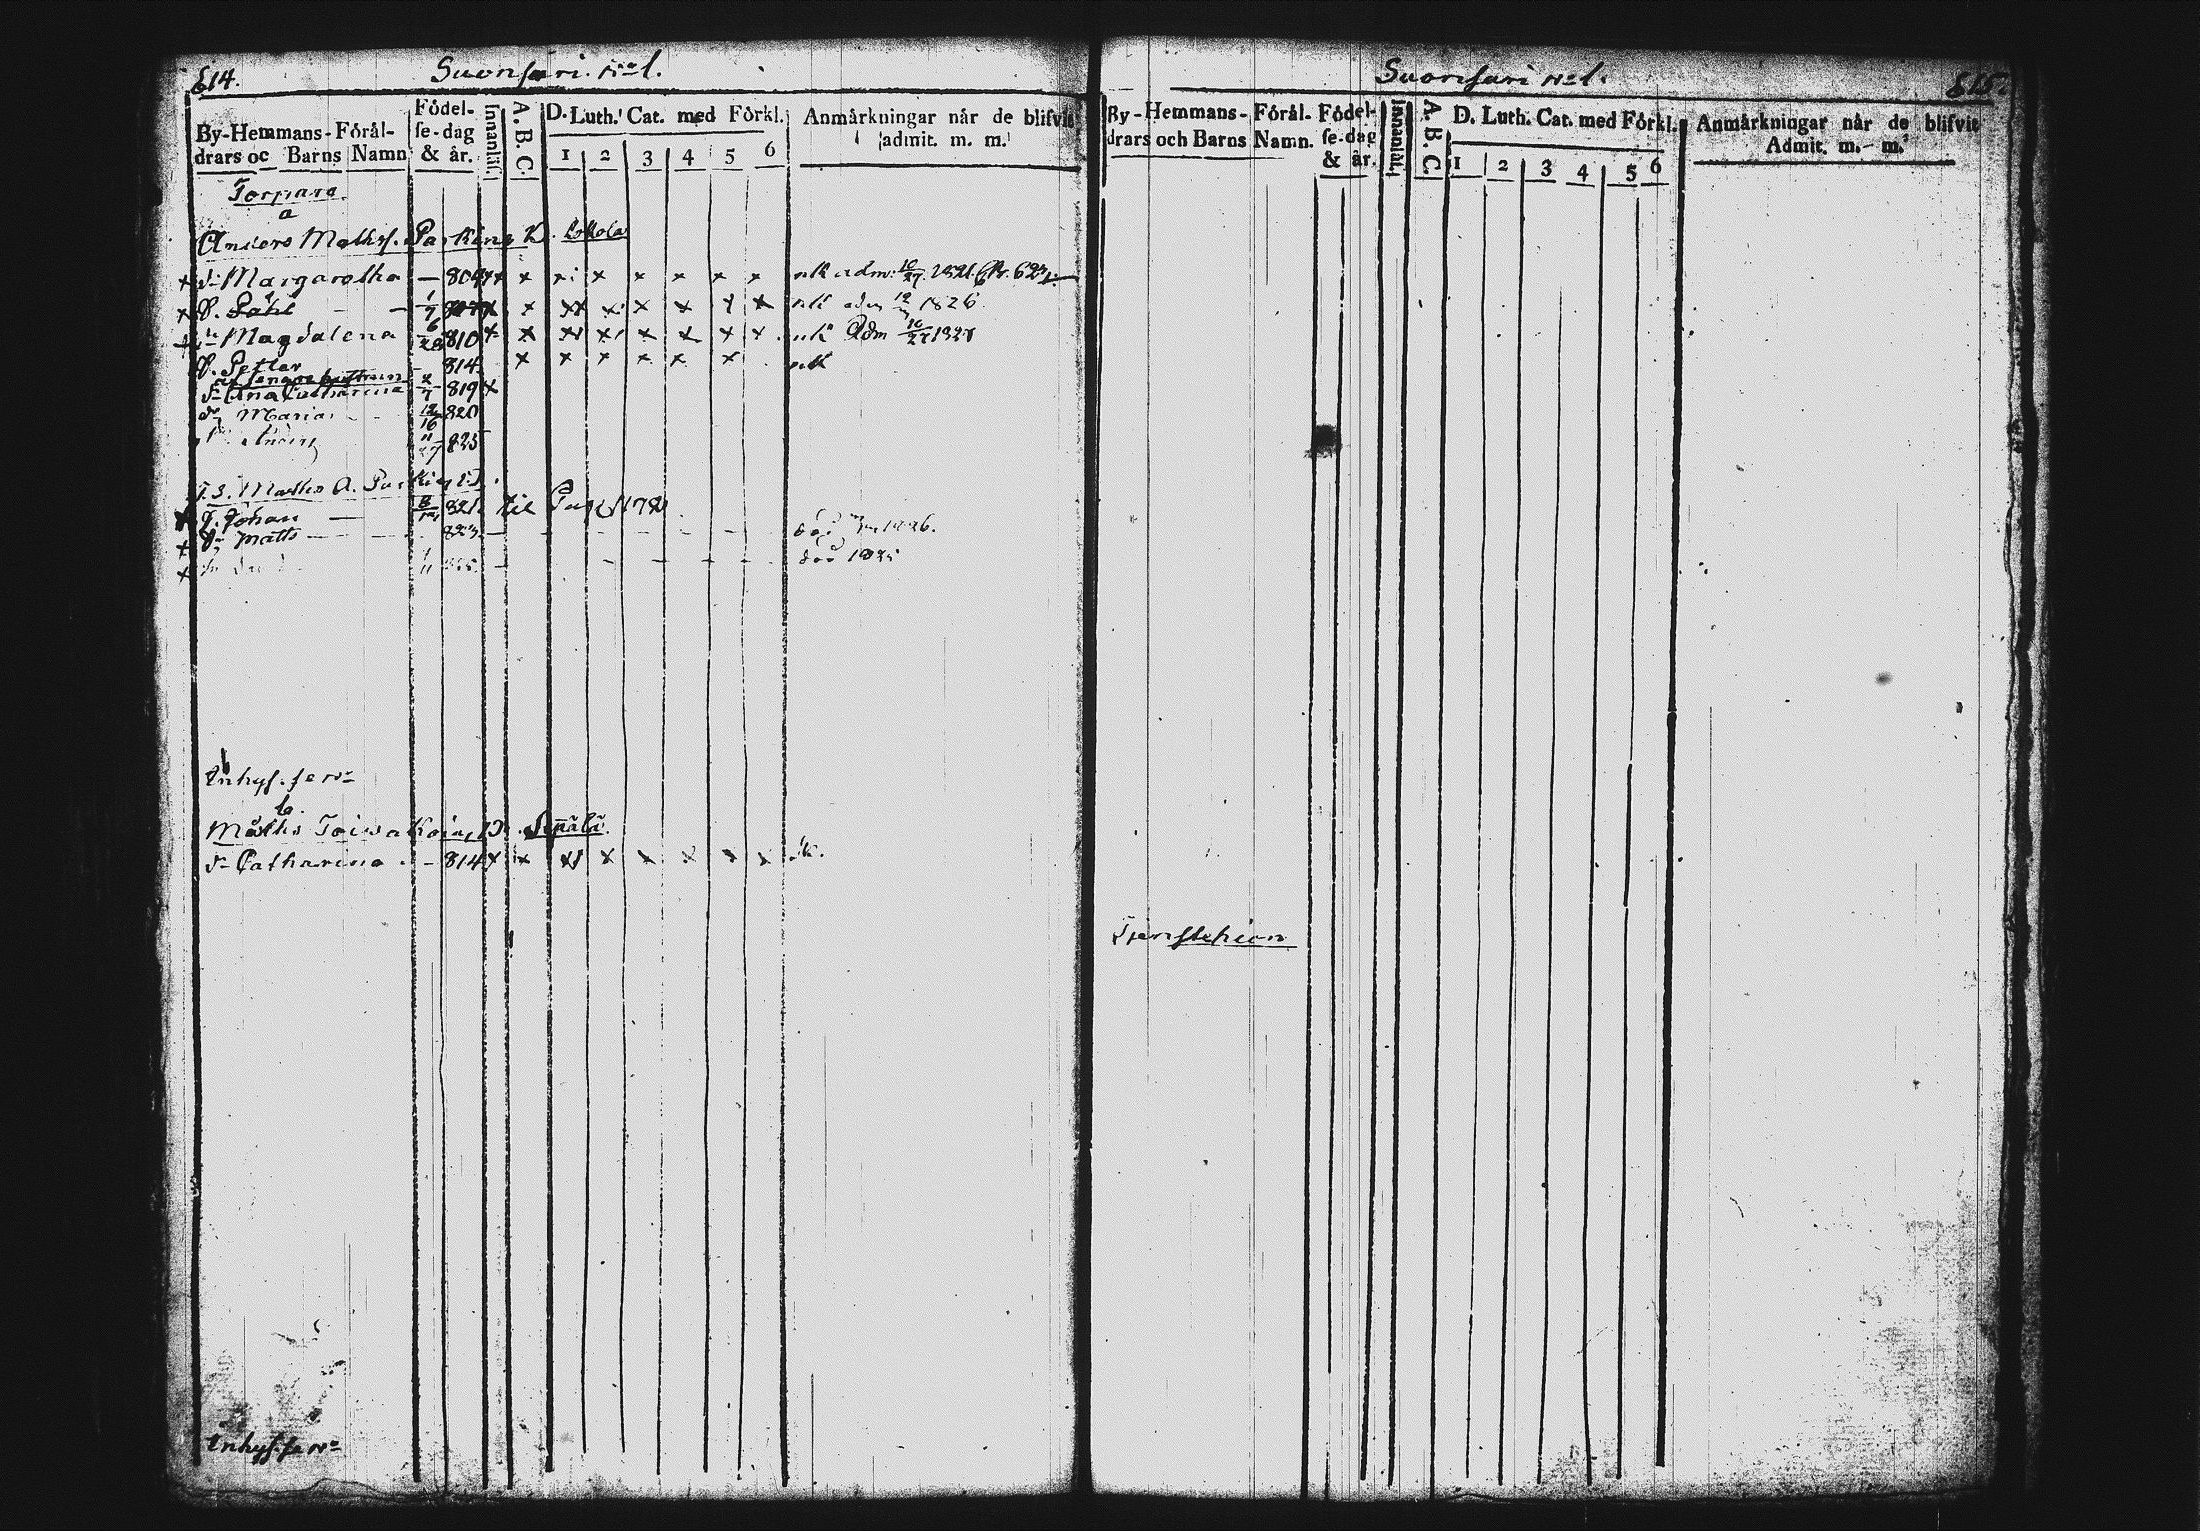 814.
Suonsari. No 1.
By-Hemmans-Förål-
drars oc Barns Namn
Födel-
se-dag
& år.
Innanläs.
A. B. C.
D. Luth. Cat. med Förkl.
1 2 3 4 5 6
Anmårkningar når de blifvit
admit. m. m.
Torpare
a
Anders Mathss. Parkin D. Lokola
x dr Margaretha — 809 x x x x x x x x nk adm: 10/27. 1821.
x S. Påhl — 1/7 807 x x x x x x x x nk adm 1826
x dr Magdalena 6/28 810 x x x x x x x x nk Adm 10/27 1827
S. Petter 814. x x x x x x nk
dr Ana Catharina 2/7 819 x
dr Maria 12/16 820
Anders 11/27 825
T. S. Maths A. Parkin D.
x S. Johan — 821. til Pag. 1178
x Sn Matts — 823. död 1826.
x död 1825
Inhys. fern
b.
Maths Toiwakain, D. Sepälä.
dr Catharina — 814 x x x x x x x x
Inhys. fern
Suonsari No 1.
815.
By-Hemmans-Förål-
drars och Barns Namn.
Födel-
se-dag
& år.
Innanläs.
A. B. C.
D. Luth. Cat. med Förkl.
1 2 3 4 5 6
Anmårkningar når de blifvit
Admit. m. m.
Tjenstehion